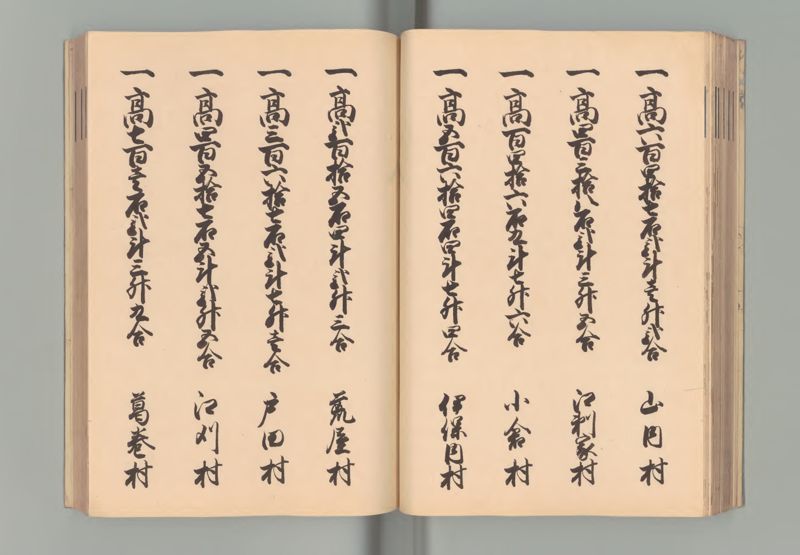 一高六百四拾七石弐斗壱升弐合 山田村
一高四百六拾八石弐斗三升五合 江刺家村
一高百四拾六石九斗七升六合 小倉村
一高五百六拾四石四斗七升四合 伊保内村
一高弐百拾五石四斗弐升三合 荒屋村
一高三百六拾七石弐斗七升壱合 戸田村
一高四百五拾七石五斗弐升五合 江刈村
一高七百壱石弐斗三升九合 葛巻村